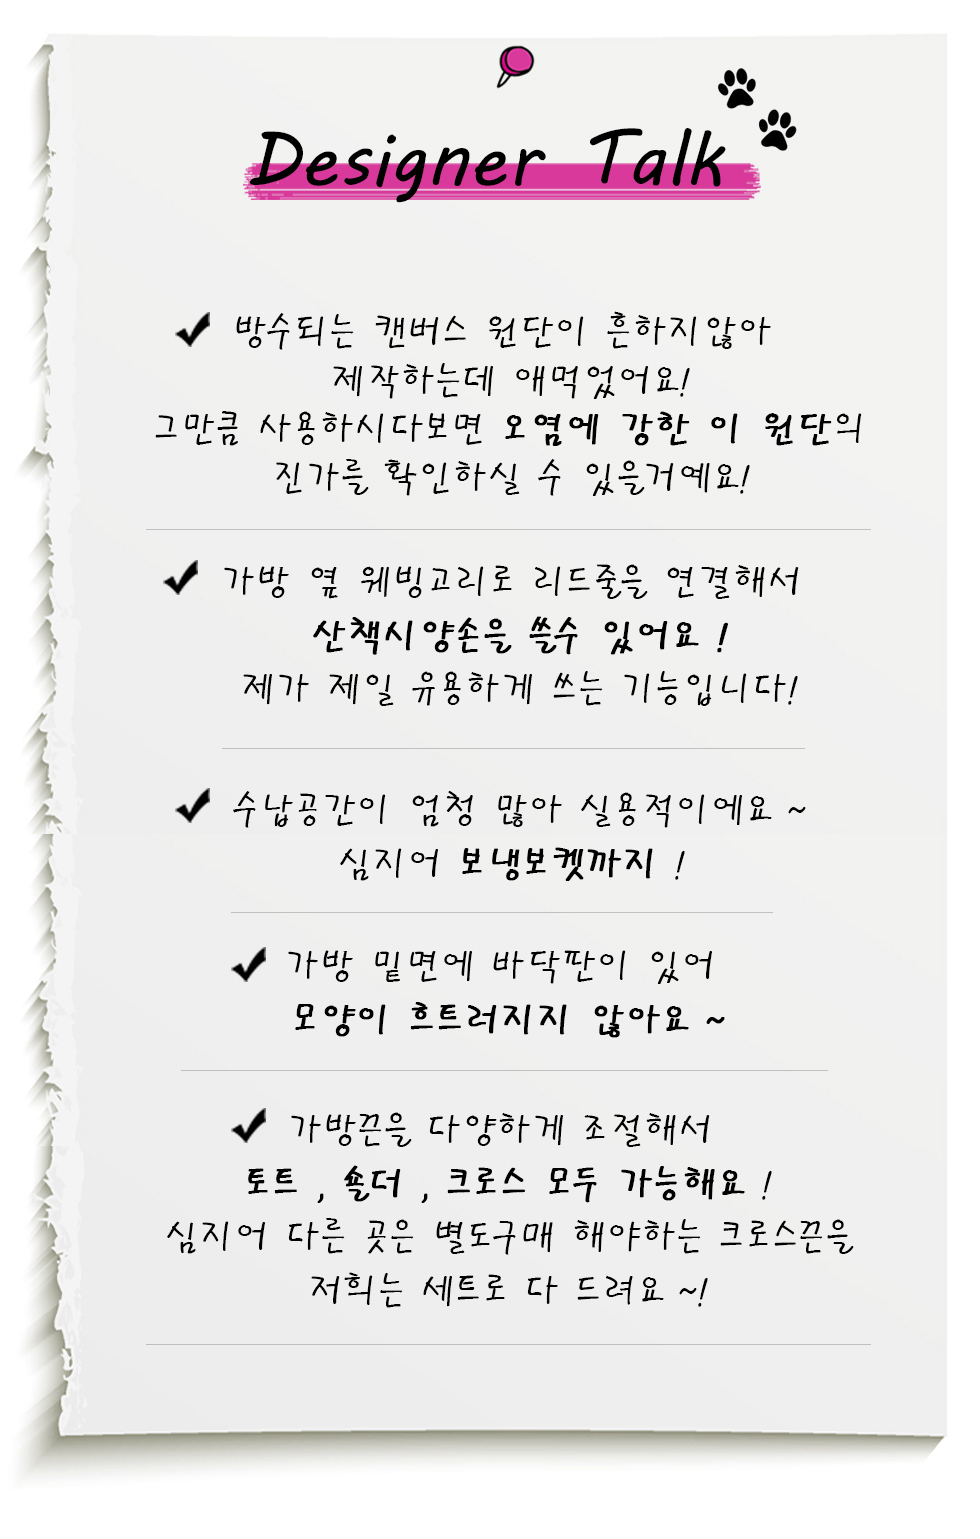 Designer Talk
방수되는 캔버스 원단이 흔하지않아
제작하는데 애먹었어요!
그만큼 사용하시다보면 오염에 강한 이 원단의
진가를 확인하실 수 있을거예요!
가방 옆 웨빙고리로 리드줄을 연결해서
산책시양손을 쓸수 있어요 !
제가 제일 유용하게 쓰는 기능입니다!
수납공간이 엄청 많아 실용적이에요 ~
심지어 보냉보켓까지 !
가방 밑면에 바닥판이 있어
모양이 흐트러지지 않아요 ~
가방끈을 다양하게 조절해서
토트 , 숄더 , 크로스 모두 가능해요 !
심지어 다른 곳은 별도구매 해야하는 크로스끈을
저희는 세트로 다 드려요 ~!